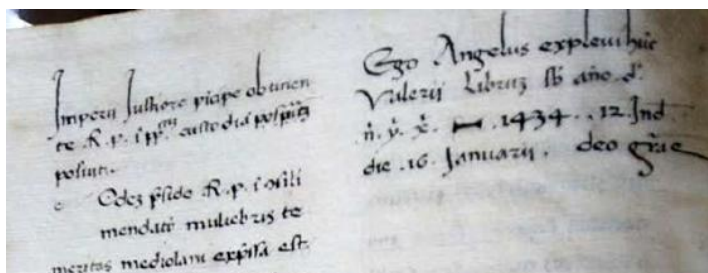 Imperij Justiore pīcipe obtinen
te .R.p. ī pp custodia
posiuit.
Odez pside .R.p. ī
mendatī muliebris te
meritas mediolani exp̄ssa est.
Ego Angelus expleui hūc
Valerij Libruz sb año d'
.n. y. x. .1434. .12. Ind
die .16. Januarij. deo gr̄ae